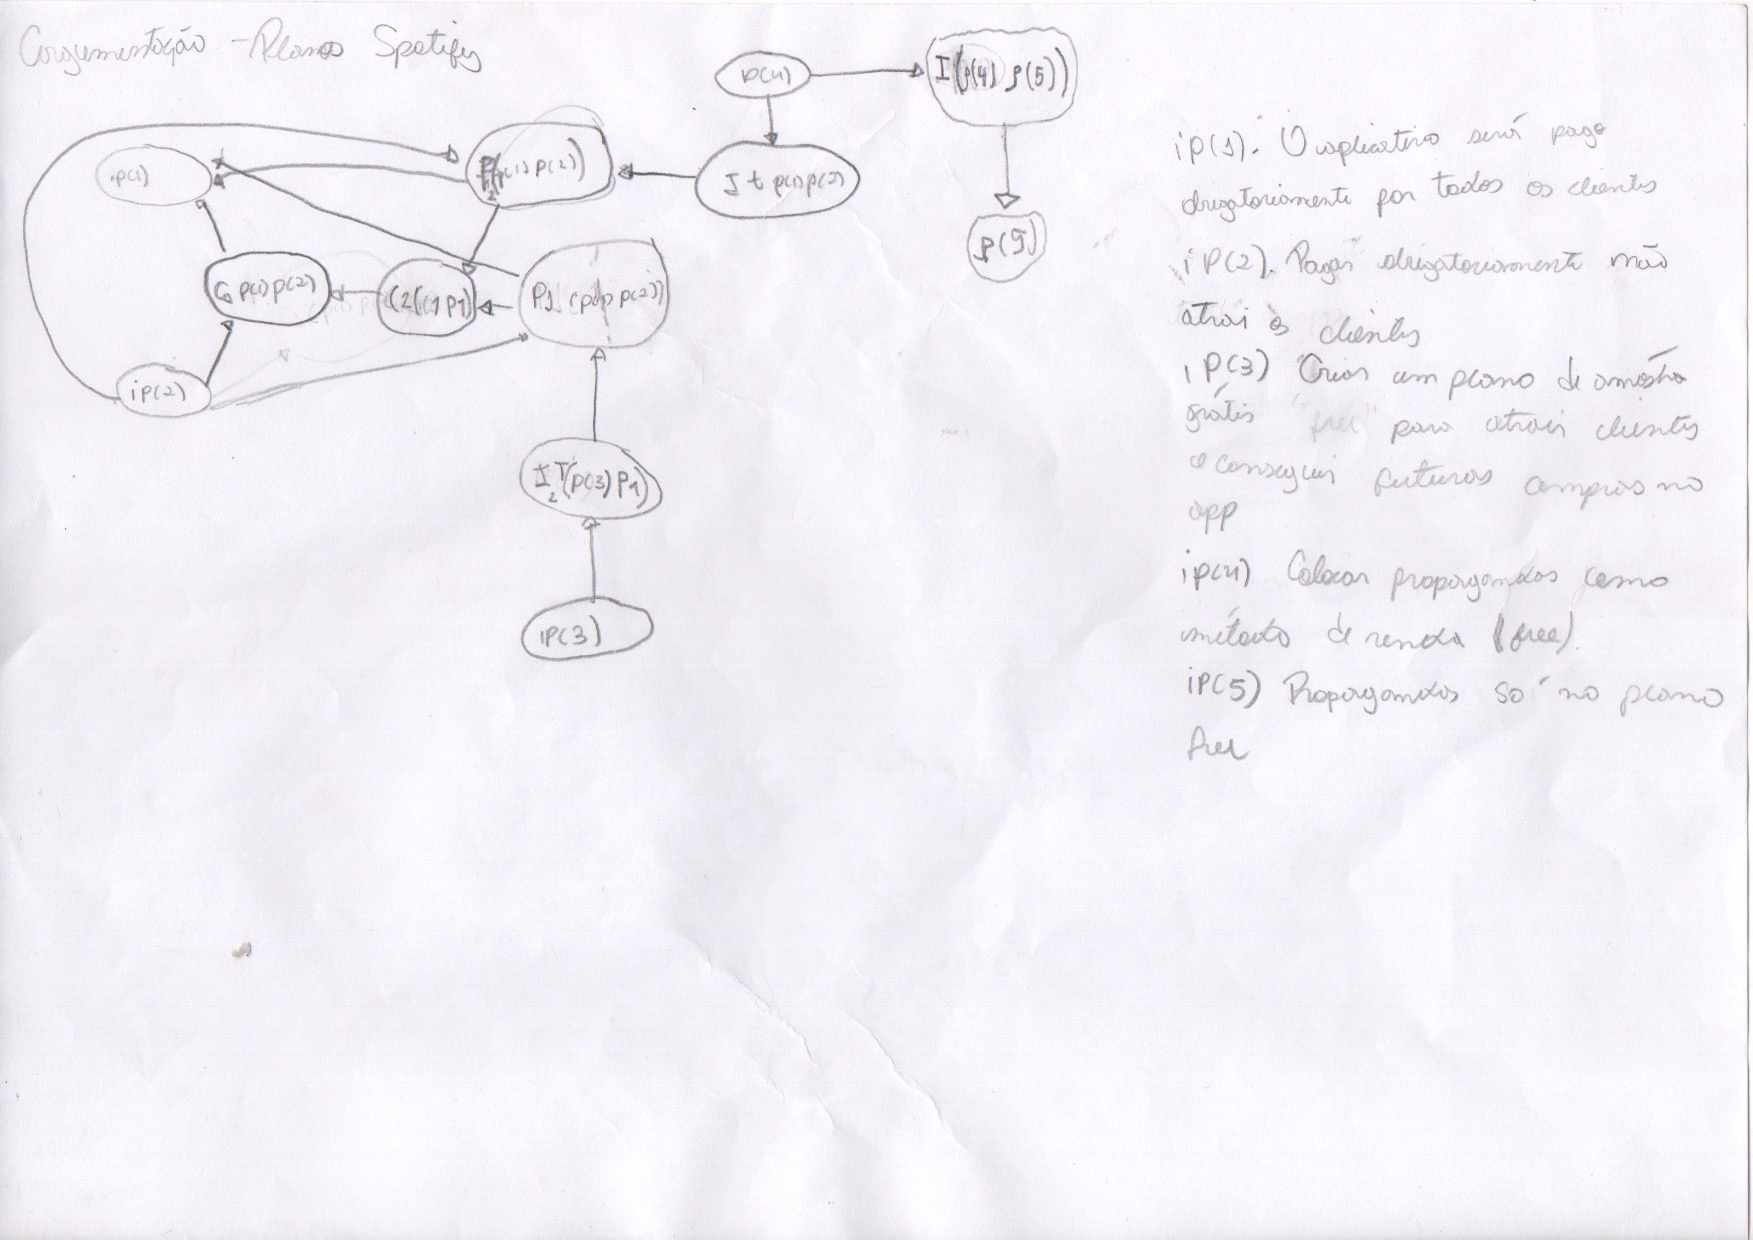 Corgumentação - Planos Spotify
p(4)
I(p(4) p(5))
ip(1)
P2(p(1) p(2))
I t p(1) p(2)
p(5)
C p(1) p(2)
C2(C1 P1)
P1 (p(1) p(2))
ip(2)
I2 T(p(3) P1)
ip(3)
ip(1). O aplicativo será pago
obrigatoriamente por todos os clientes
ip(2). Pagar obrigatoriamente não
atrai os clientes
ip(3) Criar um plano de amostra
grátis "free" para atrair clientes
e conseguir futuras compras no
app
ip(4) Colocar propargandas como
método de renda (free).
ip(5) Propargandas só no plano
free